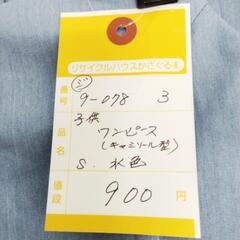 リサイクルハウスかざぐるま
ジ
番号 9-078 3
品名 子供
ワンピース
(キャミソール型)
S. 水色
値段 900円